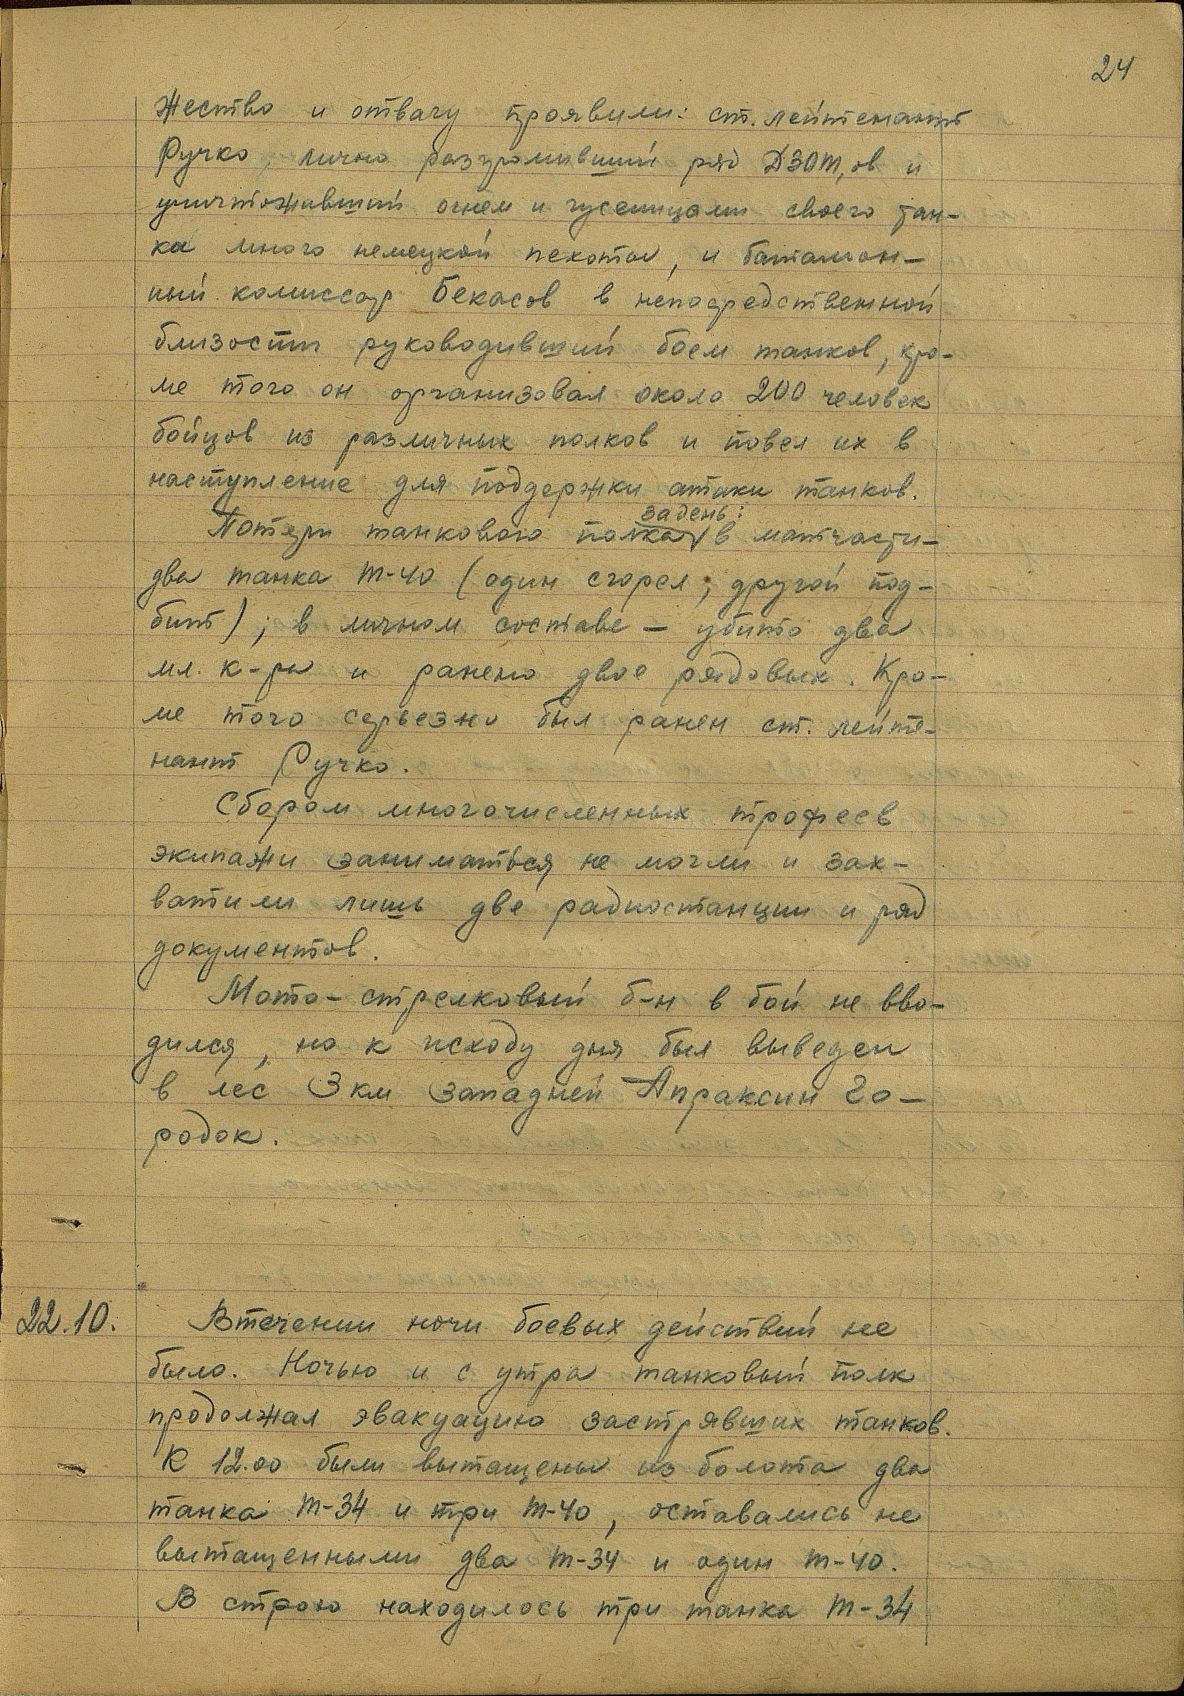 24
жество и отвагу проявили: ст. лейтенант
Ручко, лично разгромивший ряд ДЗОТ,ов и
уничтоживший огнем и гусеницами своего тан-
ка много немецкой пехоты, и баталион-
ный комиссар Бекасов в непосредственной
близости руководивший боем танков, кро-
ме того он организовал около 200 человек
бойцов из различных полков и повел их в
наступление для поддержки атаки танков.
за день:
Потери танкового полка в матчасти-
два танка Т-40 (один сгорел, другой под-
бит), в личном составе - убито два
мл. к-ра и ранено двое рядовых. Кро-
ме того серьезно был ранен ст. лейте-
нант Ручко.
Сбором многочисленных трофеев
экипажи заниматься не могли и зах-
ватили лишь две радиостанции и ряд
документов.
Мото-стрелковый б-н в бой не вво-
дился, но к исходу дня был выведен
в лес 3 км западней Апраксин го-
родок.
22.10. Втечении ночи боевых действий не
было. Ночью и с утра танковый полк
продолжал эвакуацию застрявших танков.
К 12.00 были вытащены из болота два
танка Т-34 и три Т-40, оставались не
вытащенными два Т-34 и один Т-40.
В строю находилось три танка Т-34